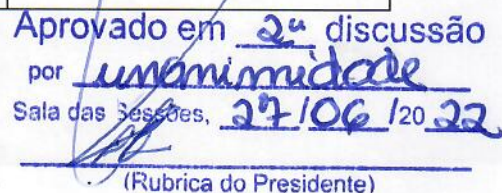 Aprovado em 2ª discussão
por unanimidade
Sala das Sessões, 27/06/2022
(Rubrica do Presidente)